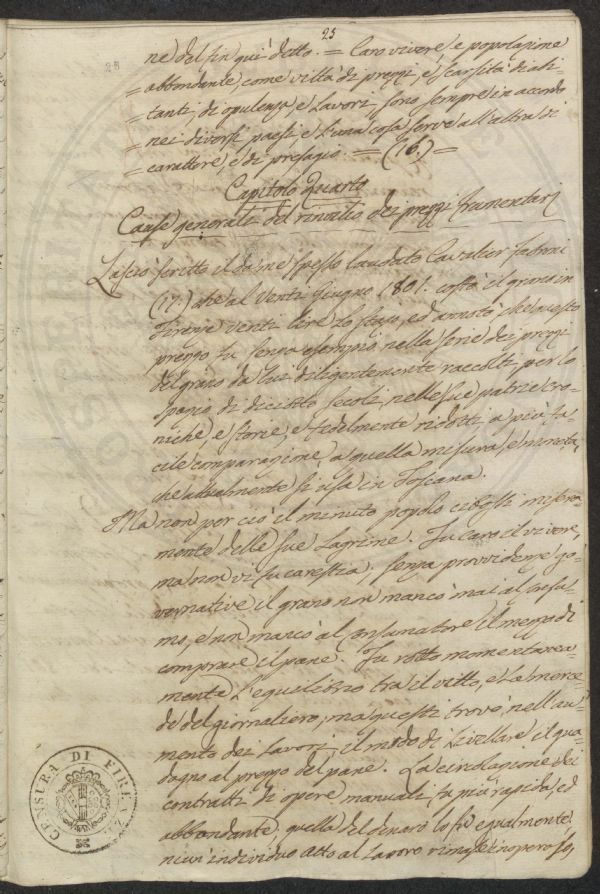 25
ne del fin quì detto. = Caro vivere, e popolazione
= abbondante, come viltà di prezzi, e scarsità di abi-
= tanti, di opulenza, e Lavori, sono sempre in accordo
= nei diversi paesi, e l'una cosa serve all'altra di
= carattere, e di presagio. = (16.) =
Capitolo Quarto
Cause generali del rincalio dei prezzi frumentarj
Lasciò scritto il da me spesso laudato Cavalier Fabroni
(17.) che al Venti Giugno 1801. costò il grano in
Firenze venti lire lo staio, ed annotò che questo
prezzo fu senza esempio nella serie dei prezzi
del grano da lui diligentemente raccolti per lo
spazio di diciotto secoli, nelle sue patrie cro-
niche, e storie, e fedelmente ridotti a più fa-
cile comparazione a quella misura, e moneta,
che attualmente si usa in Toscana.
Ma non per ciò il minuto popolo cibossi misera-
mente delle sue Lagrime. Fu caro il vivere,
ma non vi fu carestia. Senza provvidenze go-
vernative il grano non mancò mai al consu-
mo, e non mancò al Consumatore il mezzo di
comprare il pane. Fu rotto momentanea-
mente l'equilibrio tra il vitto, e la merce-
de del giornaliero, ma questi trovò nell'au-
mento dei Lavori il modo di livellare il gua-
dagno al prezzo del pane. La circolazione dei
contratti di opere manuali fu più rapida, ed
abbondante, quella del denaro lo fu egualmente,
niun individuo atto al Lavoro rimase inoperoso,
CENSURA DI FIRENZE